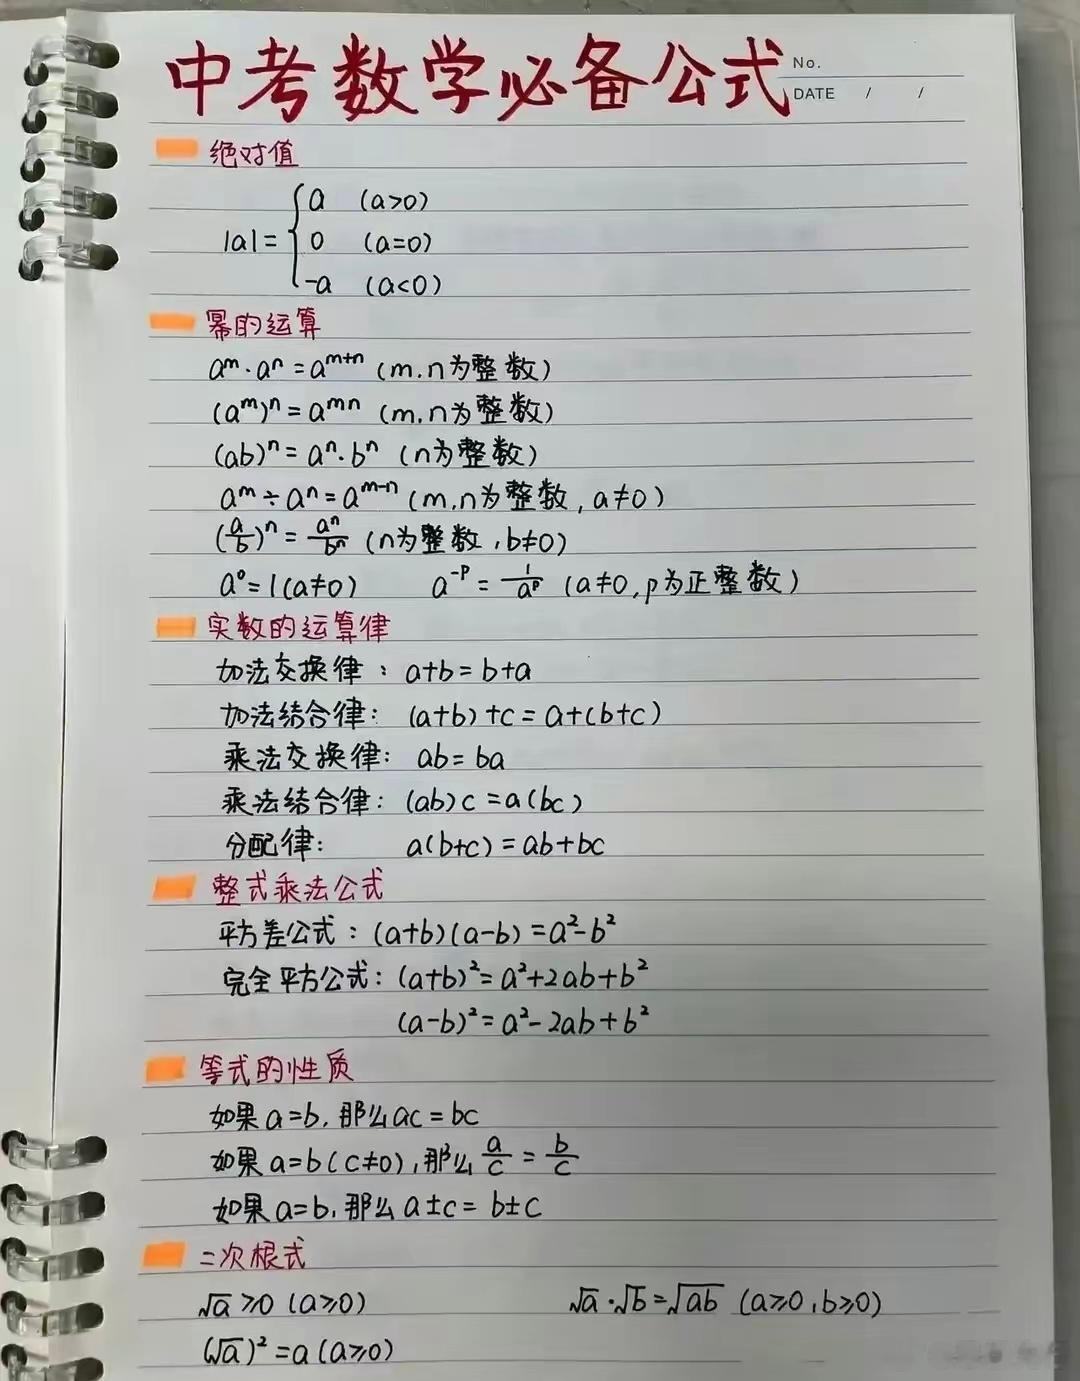 中考数学必备公式
No.
DATE / /
绝对值
|a|={a (a>0)
0 (a=0)
-a (a<0)
幂的运算
aᵐ·aⁿ=aᵐ⁺ⁿ (m.n为整数)
(aᵐ)ⁿ=aᵐⁿ (m,n为整数)
(ab)ⁿ=aⁿ·bⁿ (n为整数)
aᵐ÷aⁿ=aᵐ⁻ⁿ (m,n为整数,a≠0)
(a/b)ⁿ=aⁿ/bⁿ (n为整数,b≠0)
a⁰=1(a≠0) a⁻ᵖ=1/aᵖ (a≠0,p为正整数)
实数的运算律
加法交换律:a+b=b+a
加法结合律:(a+b)+c=a+(b+c)
乘法交换律:ab=ba
乘法结合律:(ab)c=a(bc)
分配律: a(b+c)=ab+bc
整式乘法公式
平方差公式:(a+b)(a-b)=a²-b²
完全平方公式:(a+b)²=a²+2ab+b²
(a-b)²=a²-2ab+b²
等式的性质
如果a=b,那么ac=bc
如果a=b(c≠0),那么a/c=b/c
如果a=b,那么a±c=b±c
二次根式
√a≥0 (a≥0) √a·√b=√ab (a≥0,b≥0)
(√a)²=a(a≥0)